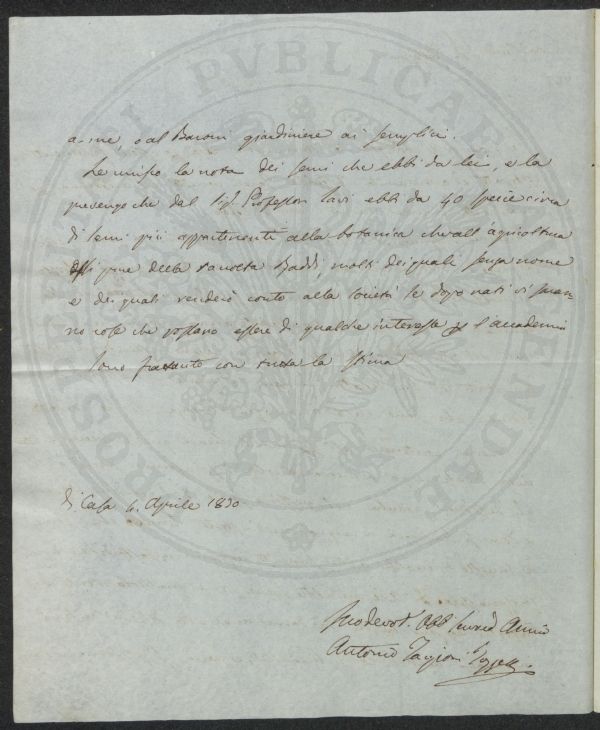 a me, o al Baroni giardiniere ai semplici.
Le unisco la nota dei semi che ebbi da lei, e la
prevengo che dal Sig. Professor Savi ebbi da 40 specie circa
di semi più appartenenti alla botanica che all'agricoltura
pure della raccolta Raddi molti dei quali senza nome
e dei quali renderò conto alla società se dopo nati vi saran-
no cose che possano essere di qualche interesse p l'accademia
Sono frattanto con tutta la stima
di Casa 4. Aprile 1830
Suo devot. Obb Servid Amico
Antonio Targioni Tozzetti
PROSPERITATI PVBLICAE AVGENDAE